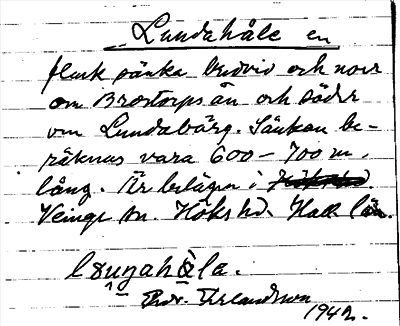 Lundahåle en
flack sänka bredvid och norr
om Brostorpsån och söder
om Lundabärg. Sänkan be-
räknas vara 600–700 m.
lång. Är belägen i
Veinge sn. Höks hd. Hall. län.
Erlandsson
1942.